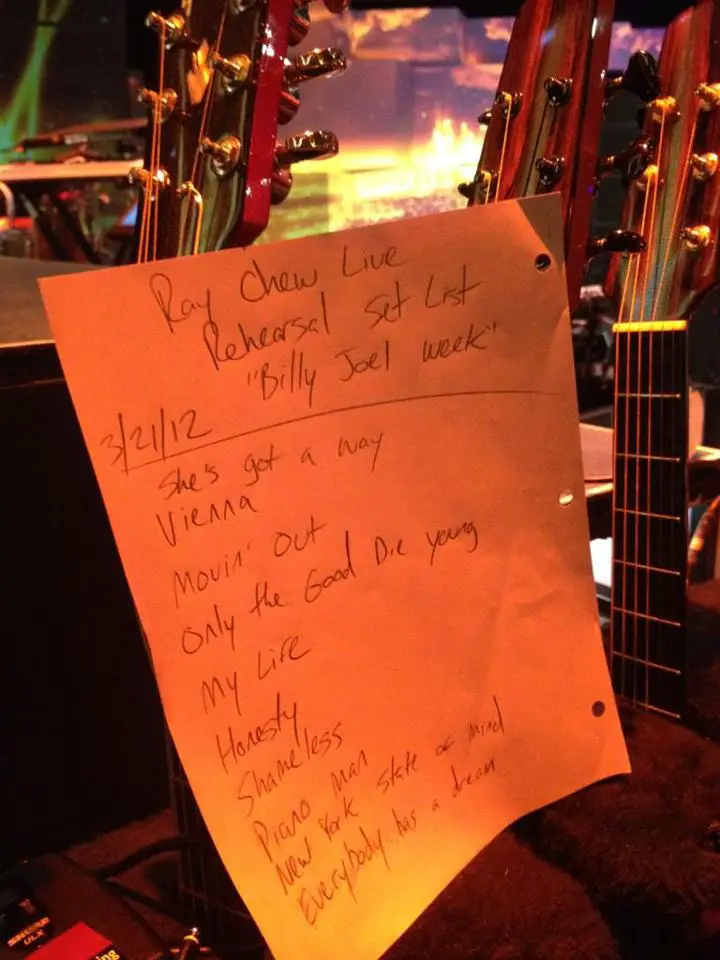 Ray Chew Live
Rehearsal Set List
"Billy Joel week"
3/21/12
She's got a way
Vienna
Movin' Out
Only the Good Die young
My Life
Honesty
Shameless
Piano Man
New York State of mind
Everybody has a dream
ULX